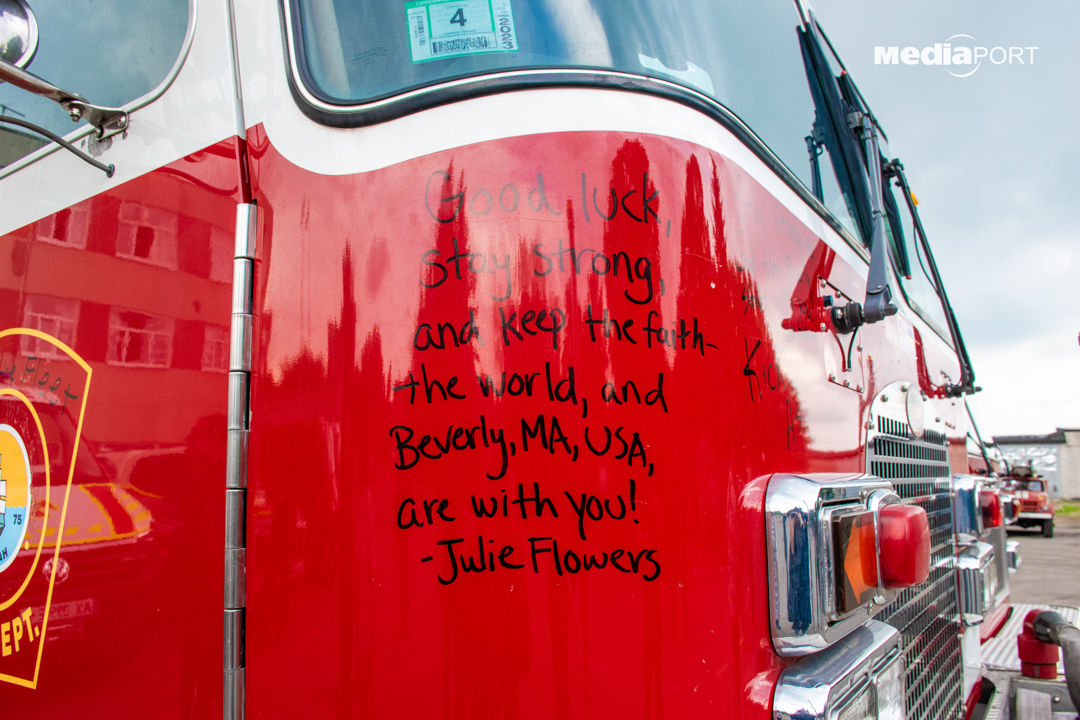 4
2023
MEDIAPORT
Good luck,
stay strong,
and keep the faith-
the world, and
Beverly, MA, USA,
are with you!
-Julie Flowers
75
EPT.